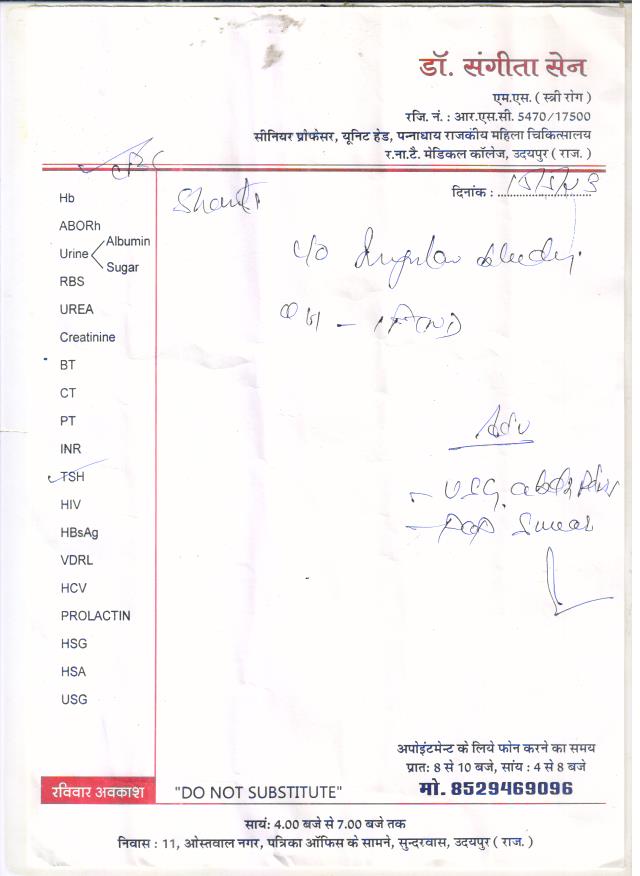 डॉ. संगीता सेन
एम.एस. ( स्त्री रोग )
रजि. नं. : आर.एस.सी. 5470/17500
सीनियर प्रोफेसर, यूनिट हेड, पन्नाधाय राजकीय महिला चिकित्सालय
र.ना.टै. मेडिकल कॉलेज, उदयपुर ( राज. )
CBC
दिनांक :
Shanti
Hb
ABORh
Urine Albumin
Sugar
RBS
UREA
Creatinine
BT
CT
PT
INR
TSH
HIV
HBsAg
VDRL
HCV
PROLACTIN
HSG
HSA
USG
c/o Irregular bleeding.
Adv
- USG.
- PAP Smear
अपोइंटमेन्ट के लिये फोन करने का समय
प्रात: 8 से 10 बजे, सांय : 4 से 8 बजे
मो. 8529469096
रविवार अवकाश
"DO NOT SUBSTITUTE"
सायं: 4.00 बजे से 7.00 बजे तक
निवास : 11, ओस्तवाल नगर, पत्रिका ऑफिस के सामने, सुन्दरवास, उदयपुर ( राज. )